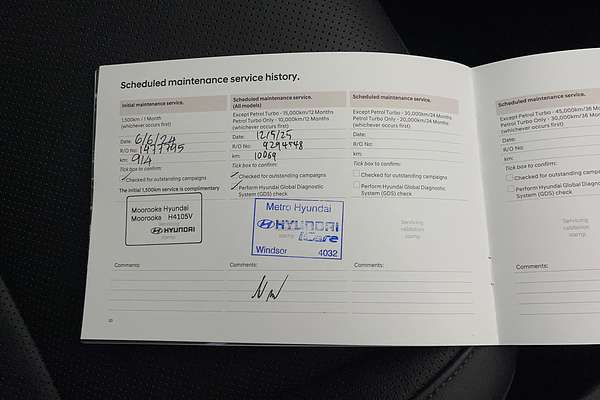 Scheduled maintenance service history.
Initial maintenance service.
1,500km / 1 Month
(whichever occurs first)
Date: 6/6/24
R/O No: 1477795
km: 914
Tick box to confirm:
Checked for outstanding campaigns
The initial 1,500km service is complimentary
Moorooka Hyundai
Moorooka H4105V
HYUNDAI
stamp
Comments:
20
Scheduled maintenance service.
(All models)
Except Petrol Turbo - 15,000km/12 Months
Petrol Turbo Only - 10,000km/12 Months
(whichever occurs first)
Date: 12/5/25
R/O No: 9294548
km: 10069
Tick box to confirm:
Checked for outstanding campaigns
Perform Hyundai Global Diagnostic
System (GDS) check
Metro Hyundai
HYUNDAI
iCare
Windsor 4032
Comments:
Scheduled maintenance service.
Except Petrol Turbo - 30,000km/24 Months
Petrol Turbo Only - 20,000km/24 Months
(whichever occurs first)
Date:
R/O No:
km:
Tick box to confirm:
Checked for outstanding campaigns
Perform Hyundai Global Diagnostic
System (GDS) check
Servicing
validation
stamp
Comments:
Scheduled maintenance service.
Except Petrol Turbo - 45,000km/36
Petrol Turbo Only - 30,000km/36 M
(whichever occurs first)
Date:
R/O No:
km:
Tick box to confirm:
Checked for outstanding campaigns
Perform Hyundai Global Diagnostic
System (GDS) check
Servicing
validation
stamp
Comments: